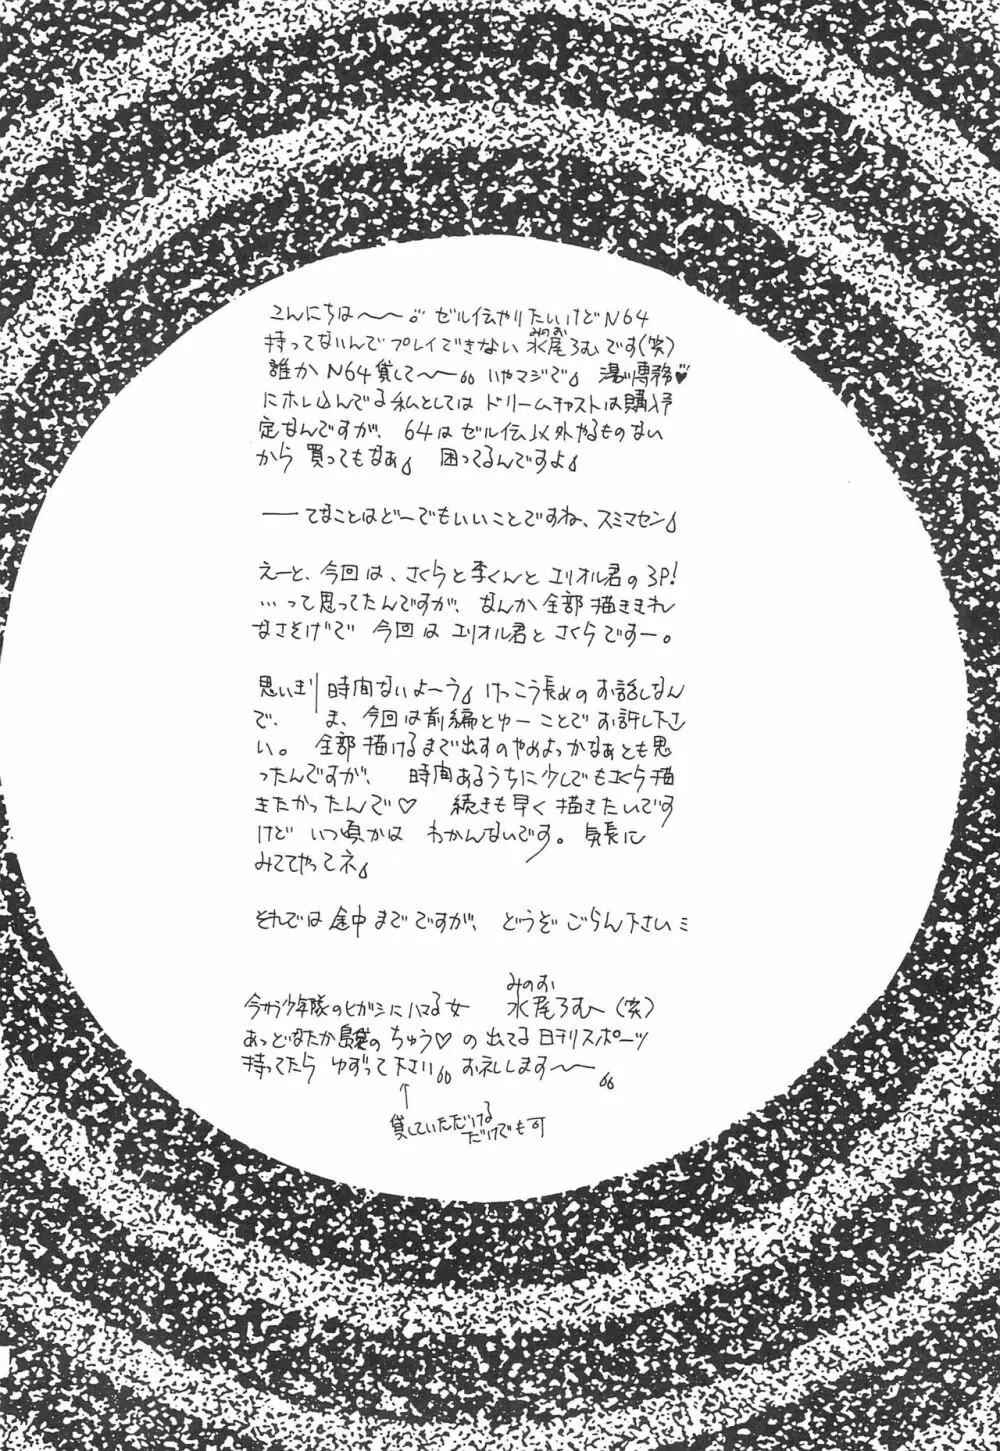 こんにちは〜〜。ゼル伝やりたいけどN64
持ってないんでプレイできない水尾ろむです(笑)
みのお
誰かN64貸して〜〜。いやマジで。湯川専務♥
にホレ込んでる私としてはドリームチャストは購入予
定なんですが、64はゼル伝以外やるものない
から買ってもなぁ。困ってるんですよ。
――てなことはどーでもいいことですね、スミマセン。
えーと、今回は、さくらと李くんとエリオル君の3P!
…って思ってたんですが、なんか全部描ききれ
なさそげで今回はエリオル君とさくらですー。
思いきり時間ないよーう。けっこう長めのお話しなん
で、ま、今回は前編とゆーことでお許し下さ
い。全部描けるまで出すのやめよっかなぁとも思
ったんですが、時間あるうちに少しでもさくら描
きたかったんで♡続きも早く描きたいです
けどいつ頃かはわかんないです。気長に
みててやってネ。
それでは途中までですが、どうぞごらん下さいミ
みのお
今さら少年隊のヒガシにハマる女 水尾ろむ〜(笑)
あっどなたか のちゅう♡の出てる日刊スポーツ
持ってたらゆずって下さい。お礼します〜〜。
↑
貸していただける
だけでも可